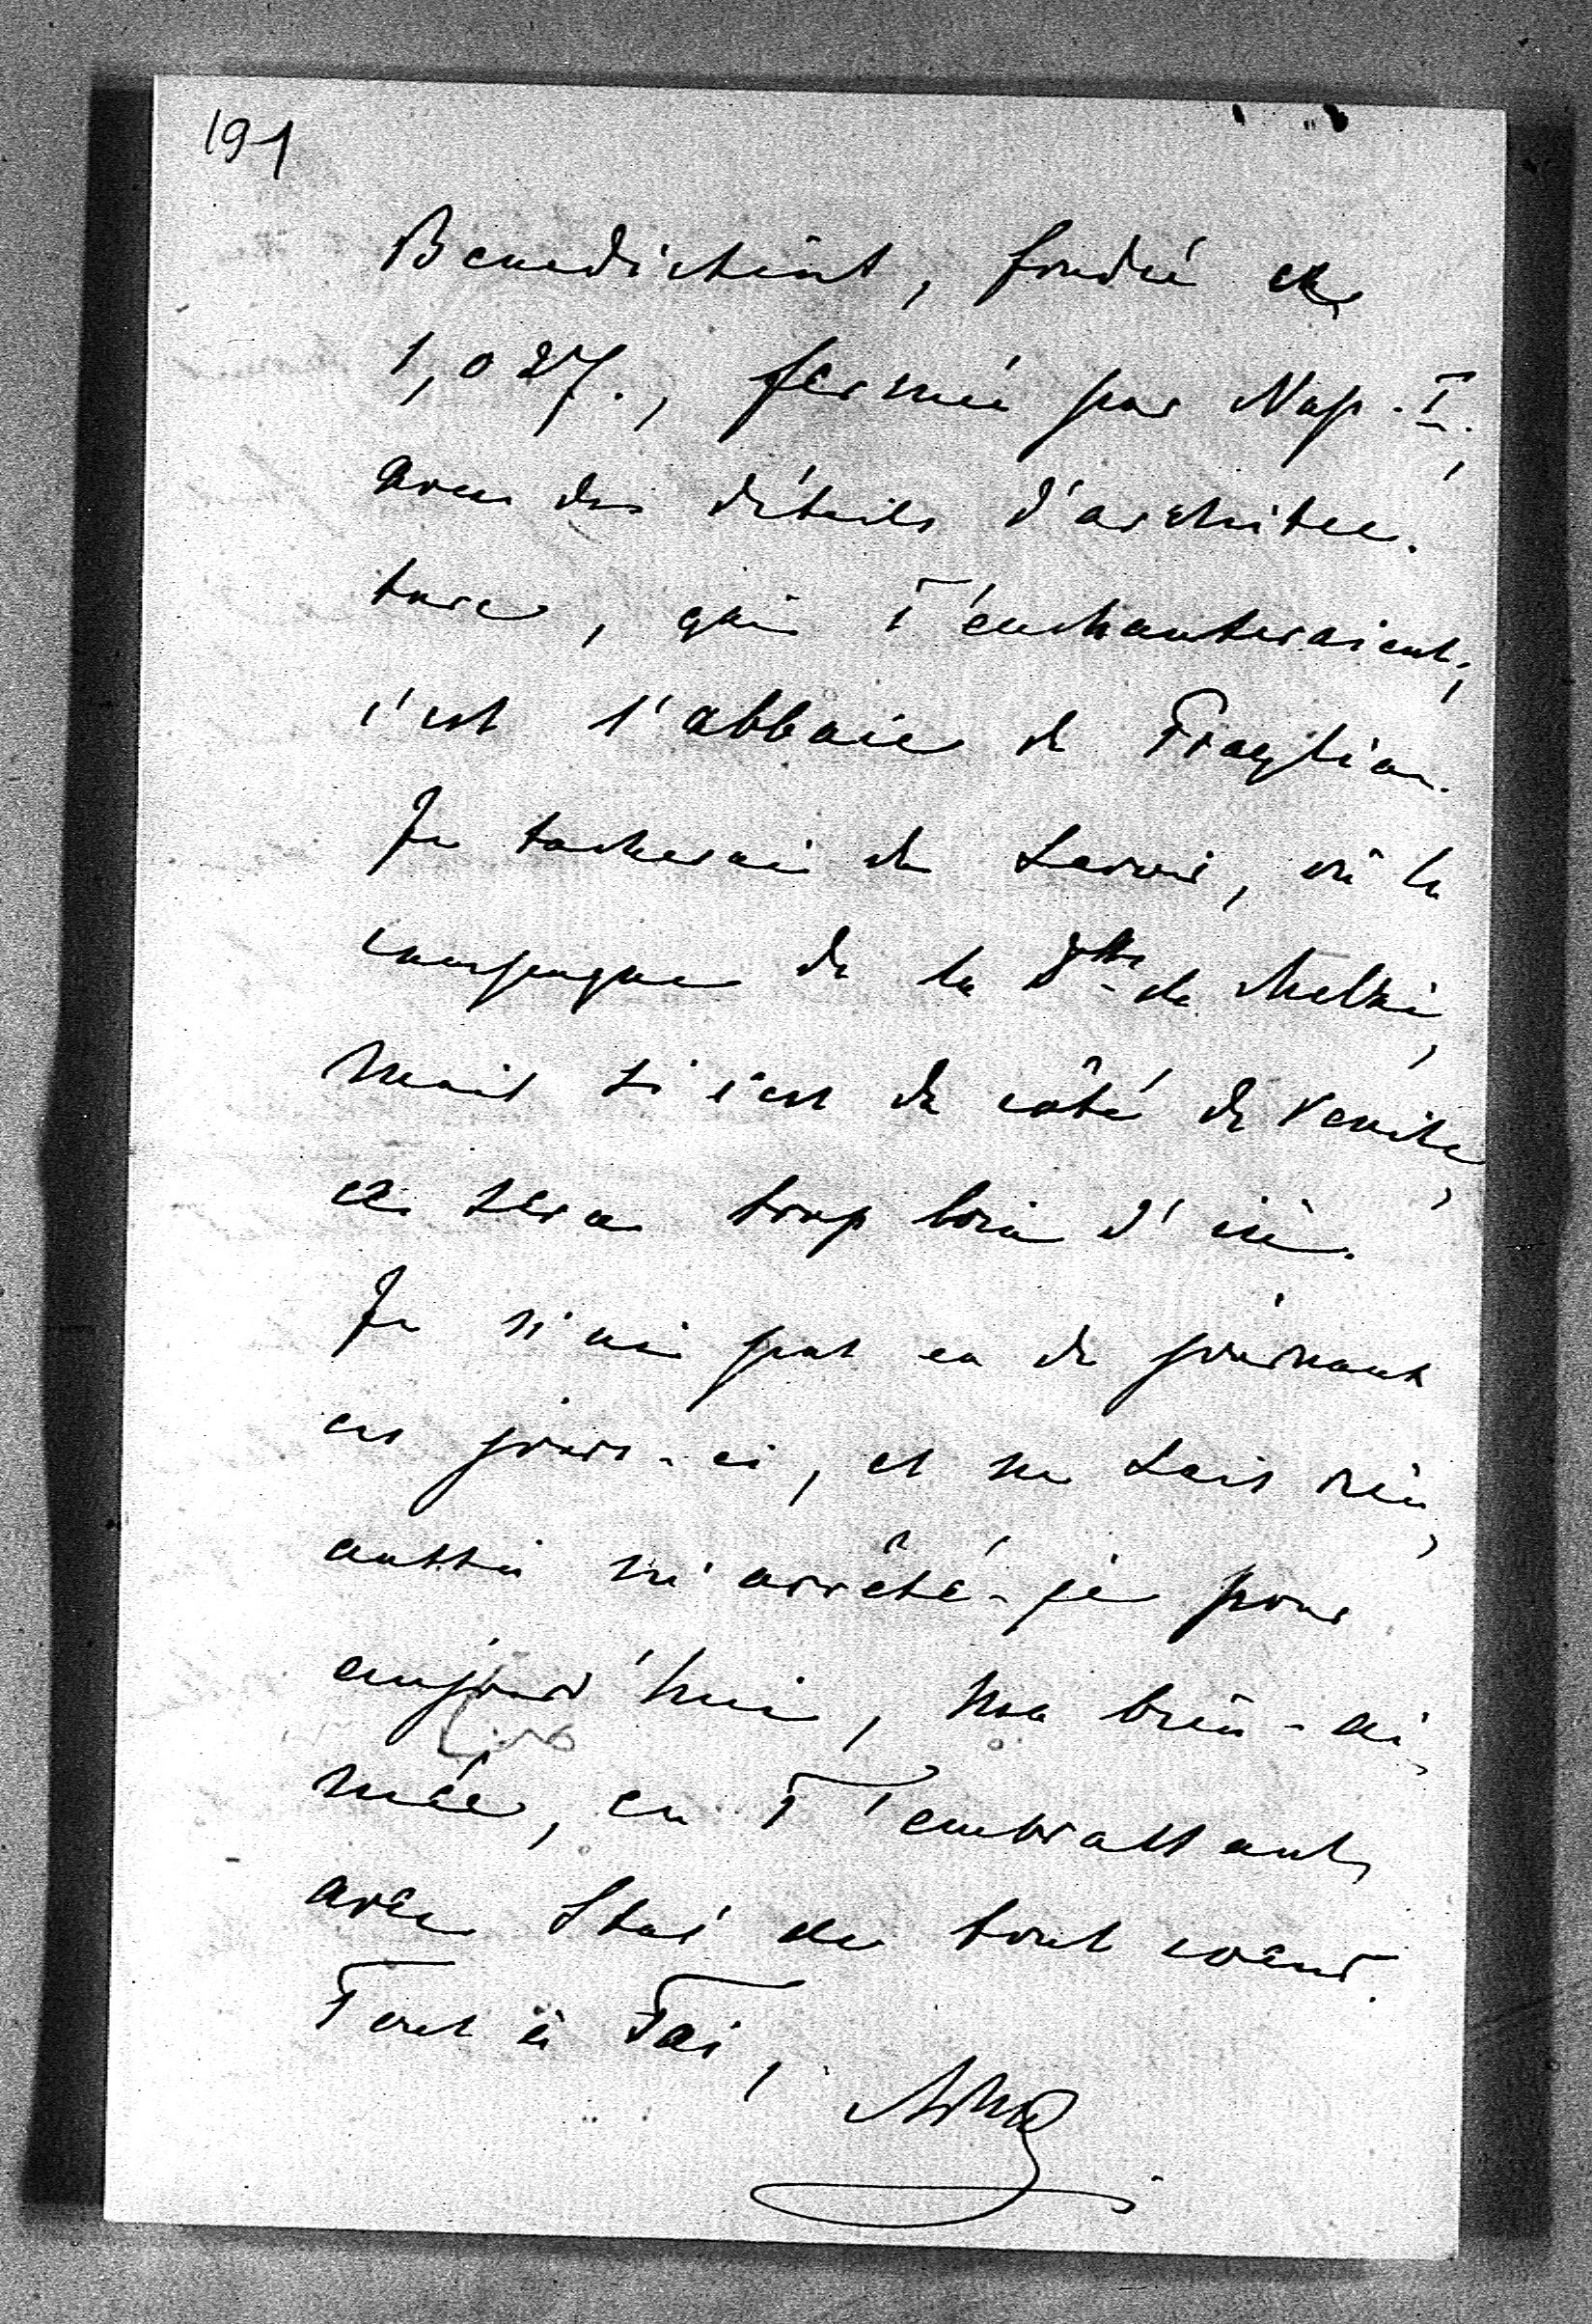 191
Benedictins, fondée en
1,027., fermée par Nap. I,
avec des détails d'architec.
ture, qui T'enchanteraient;
c'est l'abbaie de Praglia.
Je tacherai de savoir, où la
campagne de la Dsse de Melzi,
mais si c'est du côté de Venise,
ce sera trop loin d'ici.
Je n'ai pas eu de journaux
ces jours-ci, et ne sais rien,
aussi m'arrêté-je pour
aujourd'hui, ma bien-ai-
mée, en T'embrassant,
avec Stas de tout coeur.
Tout à Toi,